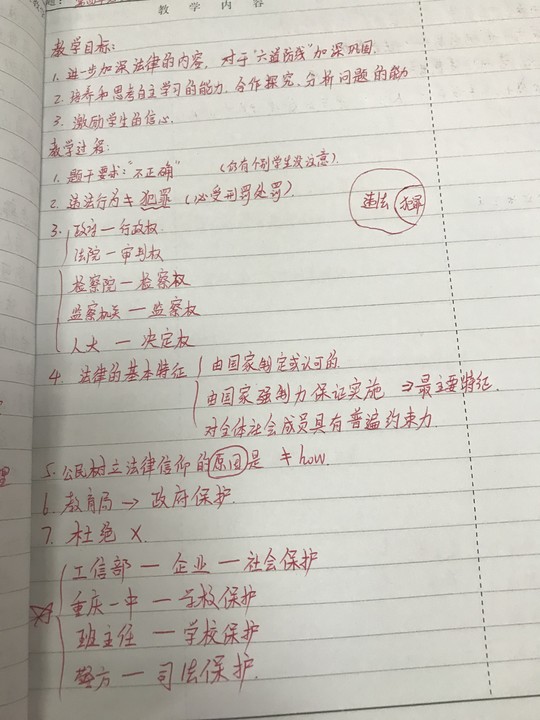 教学内容
教学目标:
1. 进一步加深法律的内容, 对于"六道防线"加深巩固.
2. 培养和思考自主学习的能力, 合作探究、分析问题的能力
3. 激励学生的信心.
教学过程:
1. 题干要求:"不正确" (仍有个别学生没注意).
2. 违法行为≠犯罪 (必受刑罚处罚).
违法 犯罪
3. 政府—行政权
法院—审判权
检察院—检察权
监察机关—监察权
人大—决定权
4. 法律的基本特征 由国家制定或认可的.
由国家强制力保证实施 ⇒最主要特征.
对全体社会成员具有普遍约束力.
5. 公民树立法律信仰的原因是 ≠ how.
6. 教育局→政府保护.
7. 杜绝 X.
工信部—企业—社会保护
重庆一中—学校保护
班主任—学校保护
警方—司法保护.